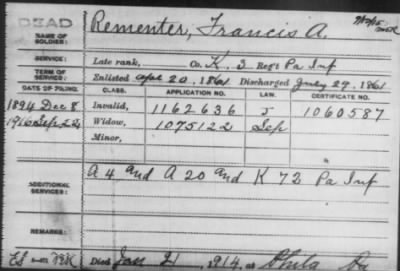 DEAD
NAME OF SOLDIER: Rementer, Francis A.
SERVICE: Late rank, Co. K, 3 Reg't Pa Inf
TERM OF SERVICE: Enlisted Apr 20, 1861 Discharged July 29, 1861
DATE OF FILING. CLASS. APPLICATION NO. LAW. CERTIFICATE NO.
1894 Dec 8 Invalid, 1162636 J 1060587
1916 Sep 22 Widow, 1075122 Sep
Minor,
ADDITIONAL SERVICES: A 4 and A 20 and K 72 Pa Inf
REMARKS:
Died Jan 21, 1914, at Phila Pa